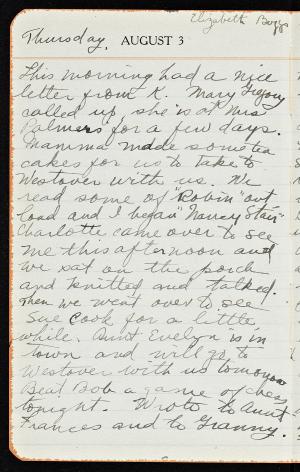 Elizabeth Boggs
Thursday, AUGUST 3
This morning had a nice
letter from K. Mary Gregory
called up, she is at Mrs
Palmers for a few days.
Mamma made some tea
cakes for us to take to
Westover with us. We
read some of "Robin" out
loud and I began "Nancy Stair"
Charlotte came over to see
me this afternoon and
we sat on the porch
and knitted and talked.
Then we went over to see
Sue Cook for a little
while. Aunt Evelyn is in
town and will go to
Westover with us tomorrow
Beat Bob a game of chess
tonight. Wrote to Aunt
Frances and to Granny.